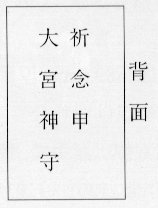 背面
祈念申
大宮神守